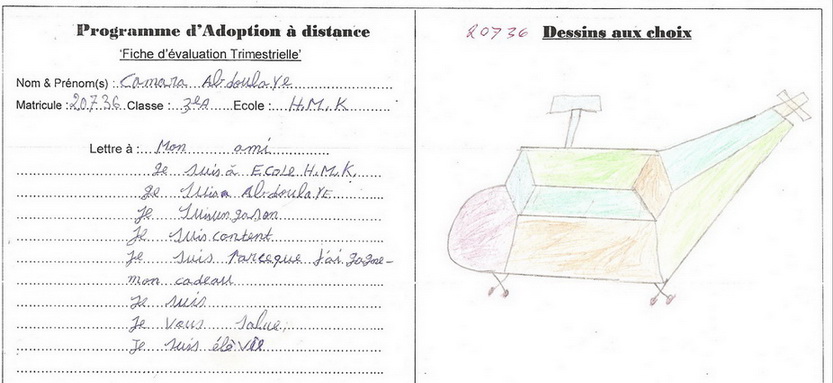 Programme d'Adoption à distance
'Fiche d'évaluation Trimestrielle'
Nom & Prénom(s) : Camara Abdoulaye
Matricule : 20736 Classe : 3ea Ecole : H.M.K
Lettre à : Mon ami
Je suis à Ecole H.M.K.
Je suisa AbdoulaYE
Je suisungarson
Je suis content
Je suis Parceque J'ai gagne-
mon cadeau
Je suis
Je vous salue.
Je suis élève
20736 Dessins aux choix